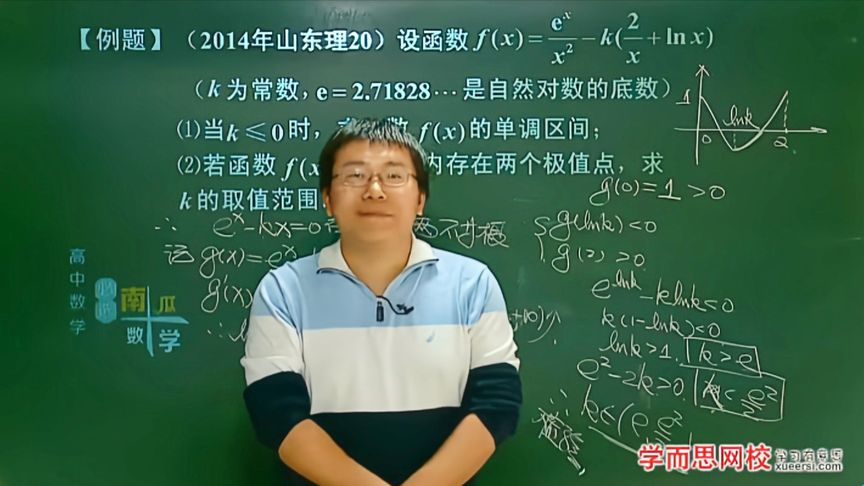 【例题】（2014年山东理20）设函数 f(x) = e^x/x^2 - k(2/x + ln x)
（k 为常数, e = 2.71828⋯是自然对数的底数）
⑴当k ≤ 0 时，
f(x)的单调区间；
⑵若函数 f(x
内存在两个极值点，求
k的取值范围
1
lnk
0
2
g(0)=1>0
∴ e^x-kx=0
两不
记 g(x)=e^x
g(lnk)<0
g(2)>0
g'(x)
e^lnk-klnk<0
k(1-lnk)<0
lnk>1. k>e
e^2-2k>0. k<e^2/2
∴ k∈(e, e^2/2
高中数学
必修
南瓜
数学
学而思网校
学习有意思
xueersi.com